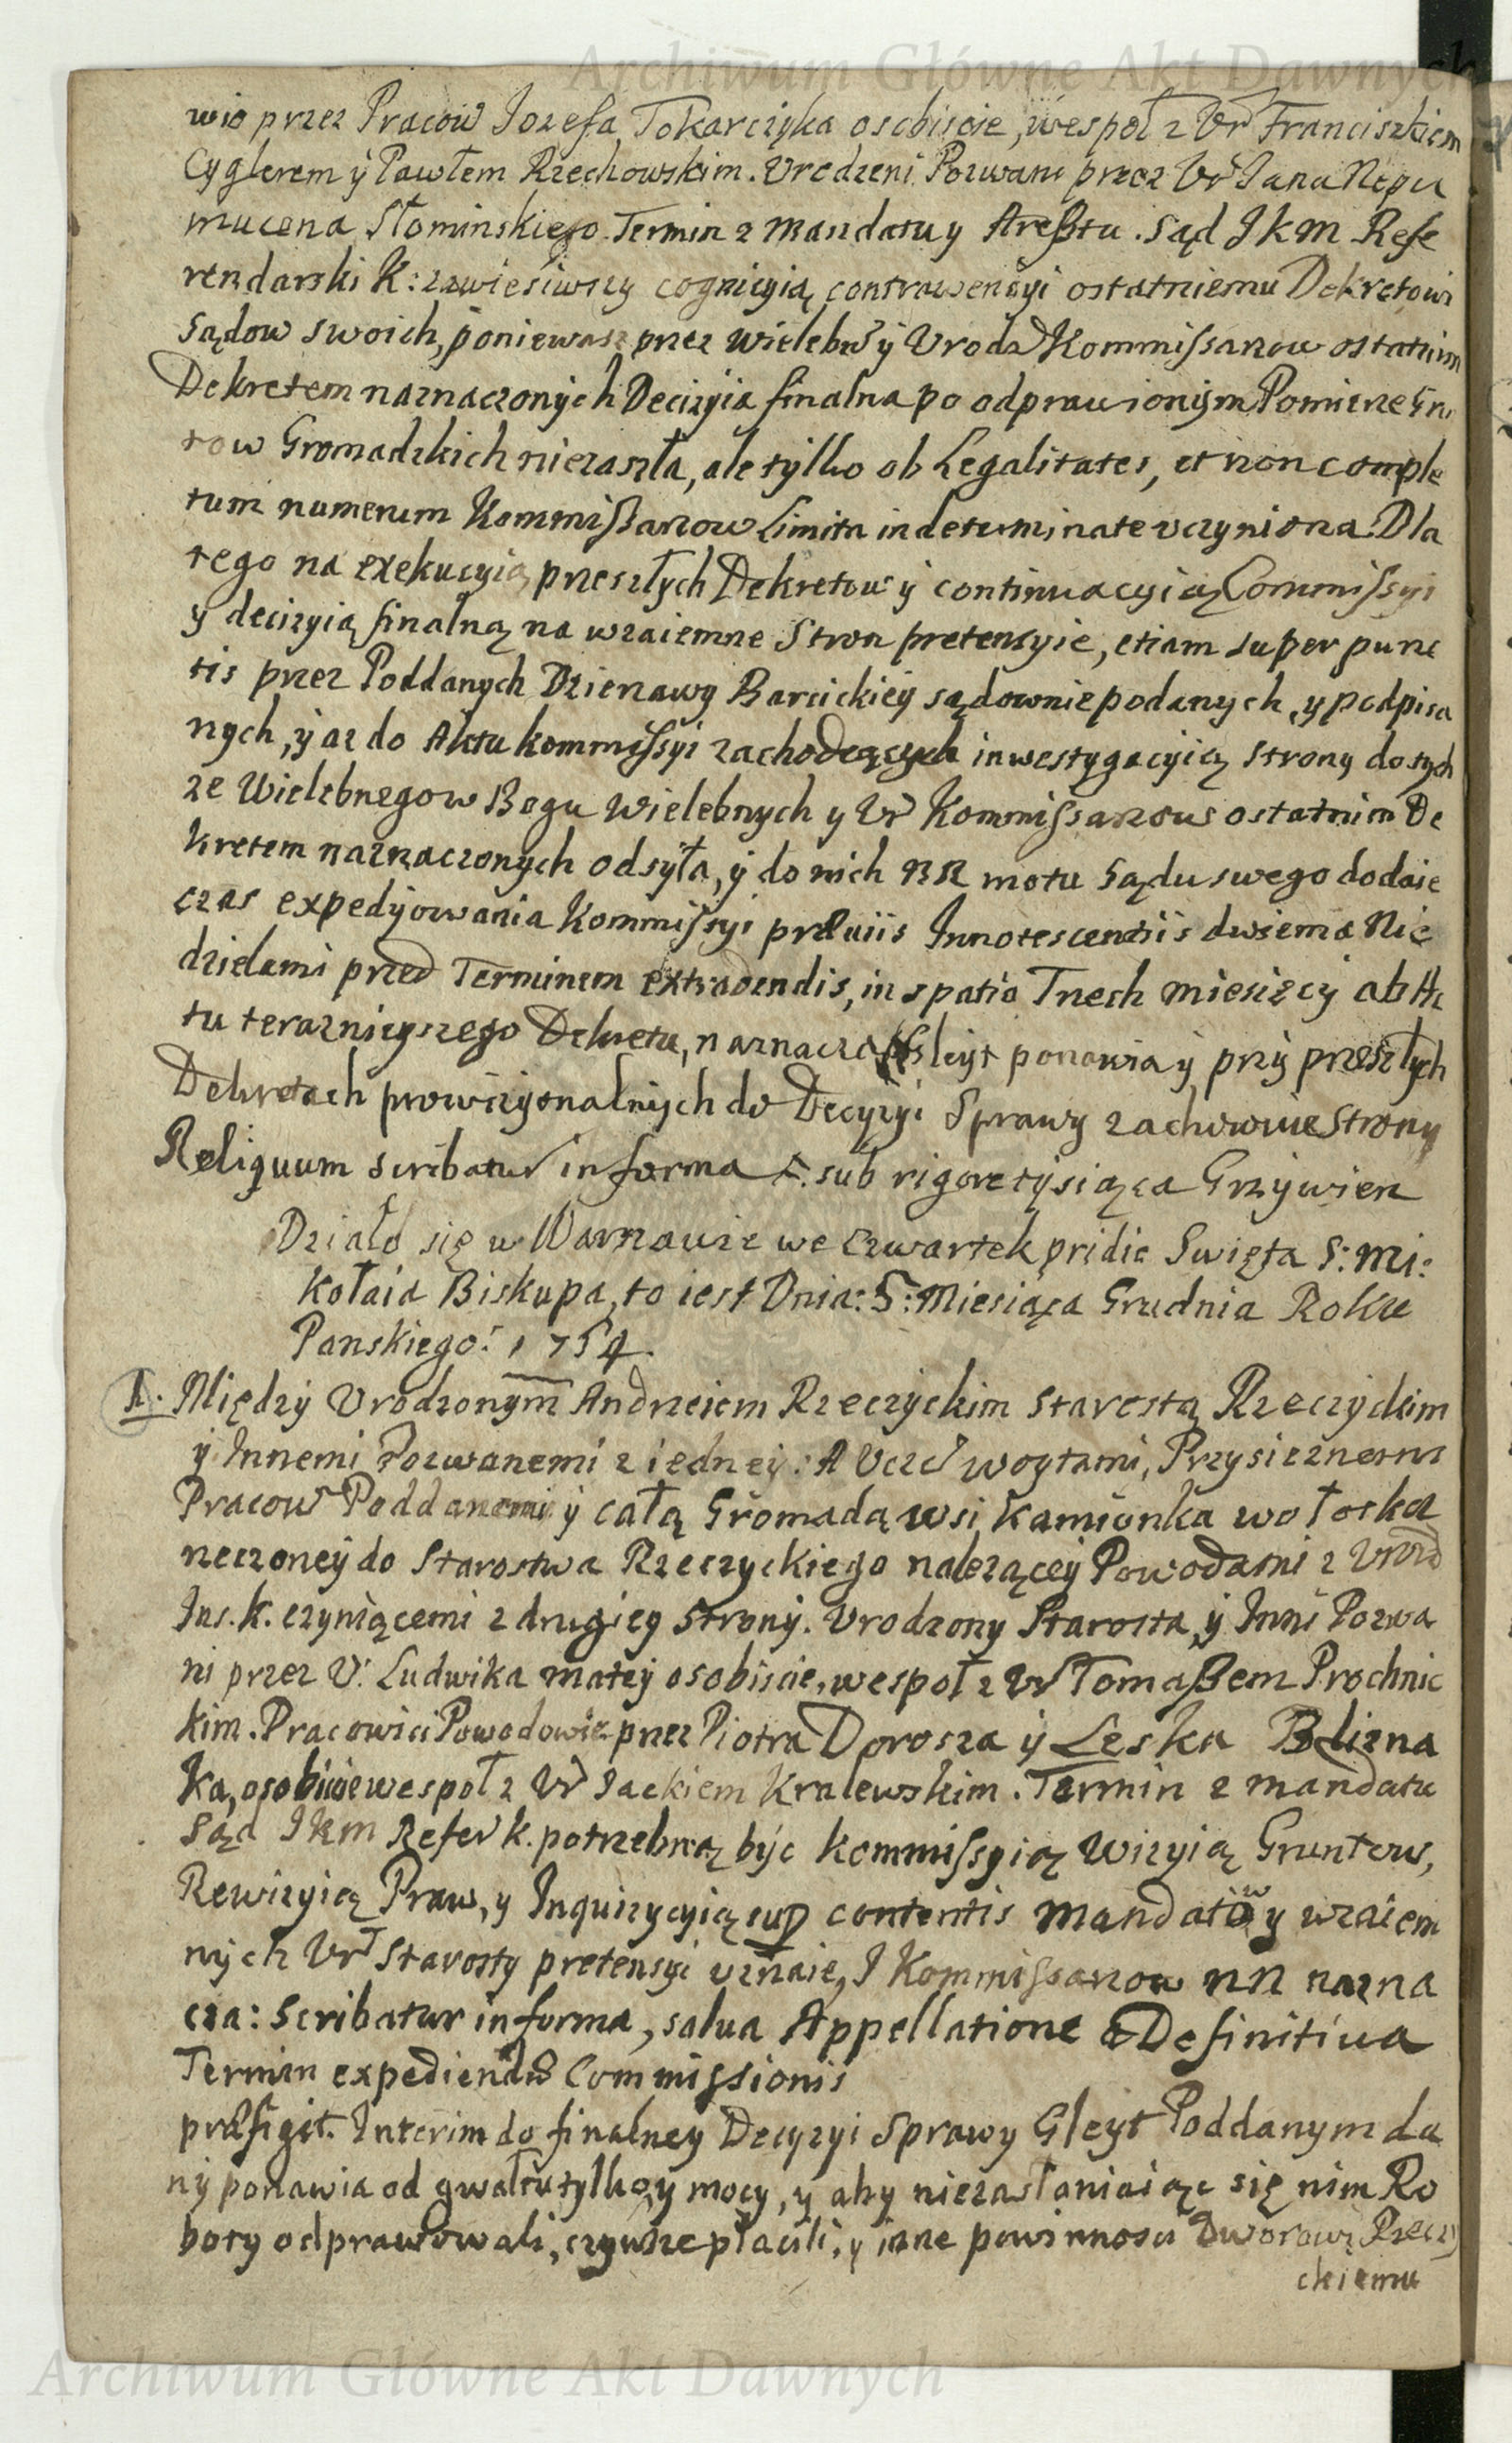 Archiwum Główne Akt Dawnych
wie przez Pracow Jozefa Tokarczyka osobiscie, wespoł z Ur Franciszkiem
Cyglerem y Pawłem Rzechowskim. Urodzeni Pozwani przez Ur Jana Nepu
mucena Słominskiego. Termin z Mandatu y Aresztu. Sąd JKM Refe
rendarski K: zawiesiwszy cognicyią contrawencyi ostatniemu Dekretowi
Sądow swoich, poniewasz przez Wielebn y Urodz Kommissarzow ostatnim
Dekretem naznaczonych Decizyia finalna po odprawionym Pomierze Grn
tow Gromadzkich niezaszła, ale tylko ob Legalitates, et non comple
tum numerum Kommissarzow Limita indeterminate uczyniona Dla
tego na exekucyią przeszłych Dekretow y continuacyią Commissyi
y decizyią finalną na wzaiemne Stron pretensyie, etiam super punc
tis przez Poddanych Dzierzawy Barcickiey sądownie podanych, y podpisa
nych, y az do Aktu kommissyi zachodzących inwestygacyią Strony do tych
ze Wielebnego w Bogu Wielebnych y Ur Kommissarzow ostatnim De
kretem naznaczonych odsyła, y do nich NN motu Sądu swego dodaie
czas expedyowania Kommissyi præuiis Innotescentiis dwiema Nie
dzielami przed Terminem extradendis, in spatio Trzech Miesięcy ab Ac
tu terazniegszego Dekretu, naznacza Gleyt ponawia y przy przeszłych
Dekretach prowizyonalnych do Decyzyi Sprawy zachowuie Strony
Reliquum scribatur in forma sub rigore tysiąca Grzywien
Działo się w Warszawie we Czwartek pridie Swięta S: Mi:
kołaia Biskupa, to iest Dnia: 5: Miesiąca Grudnia Roku
Panskiego: 1754.
1. Między Urodzonym Andrzeiem Rzeczyckim Starostą Rzeczyckim
y Innemi Pozwanemi z iedney: A Ucz Woytami, Przysieznemi
Pracow Poddanemi y całą Gromadą wsi Kamionka wołoska
rzeczoney do Starostwa Rzeczyckiego nalezącey Powodami z Urod
Ins. K. czyniącemi z drugiey Strony. Urodzony Starosta, y Inni Pozwa
ni przez U: Ludwika Matey osobiscie, wespoł z Ur Tomaszem Prochnic
kim. Pracowici Powodowie przez Piotra Dorosza y Leska Blizna
ka, osobiscie wespoł z Ur Jackiem Kralewskim. Termin z Mandatu
Sąd JKM Refer K. potrzebną być kommissyią Wizyią Gruntow,
Rewizyią Praw, y Inquizycyią sup contentis Mandatow y wzaiem
nych Ur Starosty pretensyi uznaie, J Kommissarzow NN nazna
cza: Scribatur in forma, salua Appellatione a Definitiua
Termin expediendæ Commissionis
præfigit. Interim do finalney Decyzyi Sprawy Gleyt Poddanym da
ny ponawia od gwałtu tylko, y mocy, y aby niezasłaniaiąc się nim Ro
boty odprawowali, czynsze płacili, y inne powinnosci Dworowi Rzeczy
ckiemu
Archiwum Główne Akt Dawnych